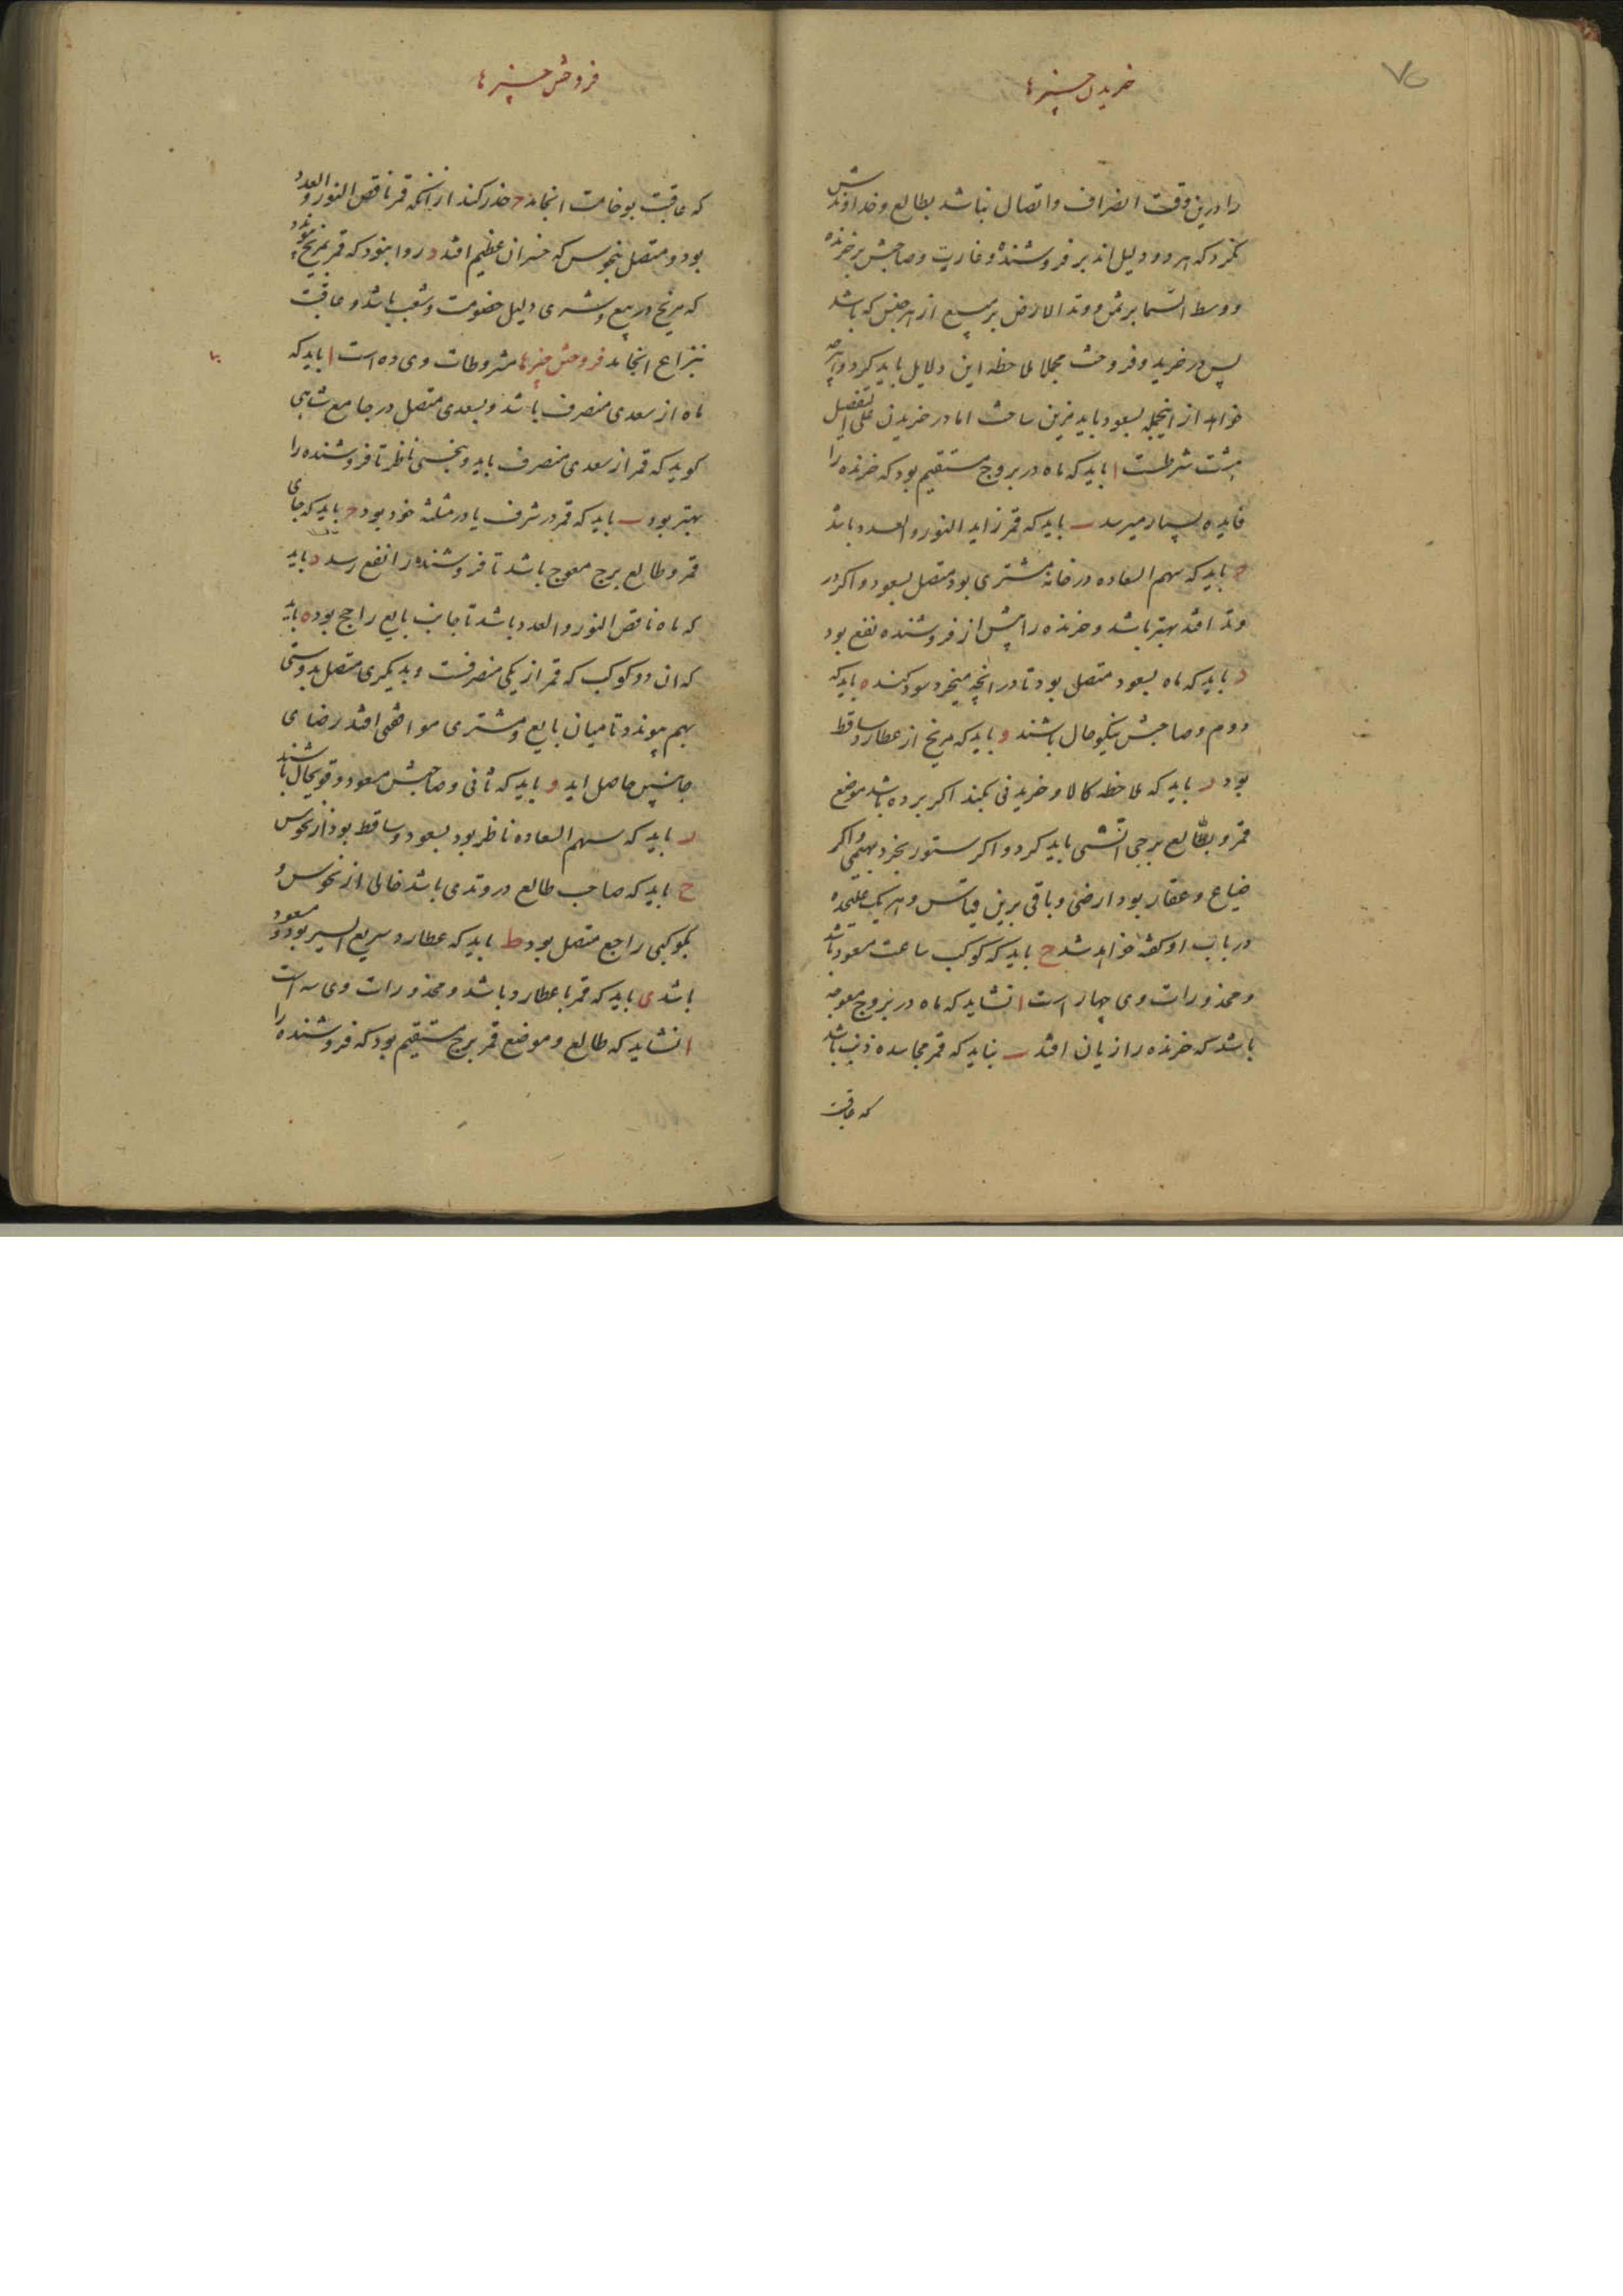 خریدن چیزها
۷۵
را درین وقت انصراف و اتصال نباشد بطالع و خداوندش
نکرد که هر دو دلیل اند بر فروشنده و غارب و صاحبش بر خرنده
و وسط السما بر ثمن و وتد الارض بر مبیع از هر جنس که باشد
پس در خرید و فروخت مجملا ملاحظه این دلایل باید کرد و هرچه
خواهد از اینجمله بسعود باید مزین ساخت اما در خریدن علی التفصیل
هشت شرطست ا باید که ماه در بروج مستقیم بود که خرنده را
فایده بسیار میرسد ب باید که قمر زاید النور و العدد باشد
ج باید که سهم السعاده در خانه مشتری بود متصل بسعود و اکر در
وتد افتد بهتر باشد و خرنده را بیش از فروشنده نفع بود
د باید که ماه بسعود متصل بود تا در انچه میخرد سود کند ه باید که
دوم و صاحبش نیکو حال باشند و باید که مریخ از عطارد ساقط
بود ز باید که ملاحظه کالا و خریدنی بکند اکر برده باشد موضع
قمر و طالع برجی اتشی باید کرد و اکر ستور بخرد بهیمی و اکر
ضیاع و عقار بود ارضی و باقی برین قیاس و هر یک علیحده
در باب او کفته خواهد شد ح باید که کوکب ساعت مسعود باشد
و محذورات وی چهار است ا نشاید که ماه در بروج معوجه
باشد که خرنده را زیان افتد ب نباید که قمر مجاسده ذنب باشد
که عاقبت
فروختن چیزها
که عاقبت بوخامت انجامد ج حذر کند از انکه قمر ناقص النور و العدد
بود و متصل بنحوس که خسران عظیم افتد د روا نبود که قمر بمریخ پیوندد
که مریخ در بیع و شری دلیل خصومت و شغب باشد و عاقبت
بنزاع انجامد فروختن چیزها مشروطات وی ده است ا باید که
ماه از سعدی منصرف باشد و بسعدی متصل در جامع شاهی
کوید که قمر از سعدی منصرف باید و بنحسی ناظر تا فروشنده را
بهتر بود ب باید که قمر در شرف یا در مثلثه خود بود ج باید که جای
قمر و طالع برج معوج باشد تا فروشنده را نفع رسد د باید
که ماه ناقص النور و العدد باشد تا جانب بایع راجح بود ه باید
که ان دو کوکب که قمر از یکی منصرفست و بدیکری متصل بدوستی
بهم پیوندد تا میان بایع و مشتری موافقتی افتد رضای
جانبین حاصل اید و باید که ثانی و صاحبش مسعود و قویحال باشند
ز باید که سهم السعاده ناظر بود بسعود و ساقط بود از نحوس
ح باید که صاحب طالع در وتدی باشد خالی از نحوس و
بکوکبی راجع متصل بود ط باید که عطارد سریع السیر بود و مسعود
باشد ی باید که قمر با عطارد باشد و محذورات وی سه است
ا نشاید که طالع و موضع قمر برج مستقیم بود که فروشنده را